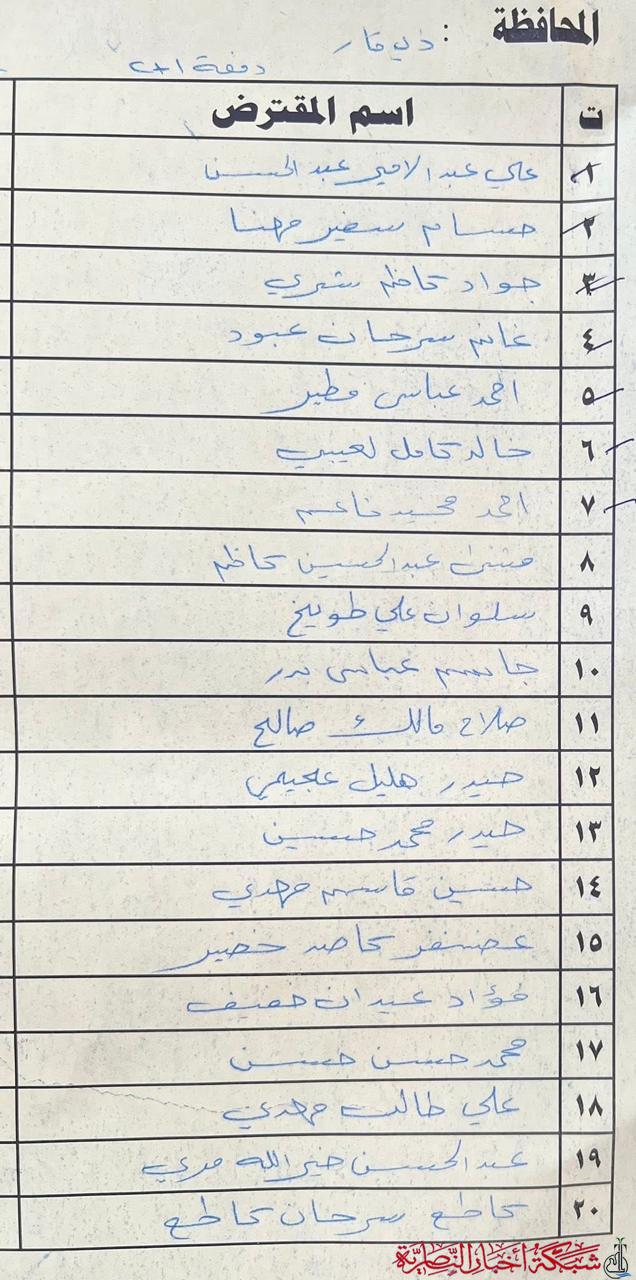 المحافظة : ذي قار
دفعة ١+٢
ت اسم المقترض
١ علي عبد الامير عبد الحسن
٢ حسام سفير مهنا
٣ جواد كاظم شري
٤ غانم سرحان عبود
٥ احمد عباس مطير
٦ خالد كامل لعيبي
٧ احمد محيد
٨ مثنى عبد الحسين كاظم
٩ سلوان علي طويخ
١٠ جاسم عباس بدر
١١ صلاح مالك صالح
١٢ حيدر هليل عجيمي
١٣ حيدر محمد حسين
١٤ حسين قاسم مهدي
١٥ غضنفر خضير
١٦ فؤاد عيدان خفيف
١٧ محمد حسن حسن
١٨ علي طالب مهدي
١٩ عبد الحسن خير الله مري
٢٠ كاطع سرحان كاطع
شبكة أخبار الناصرية